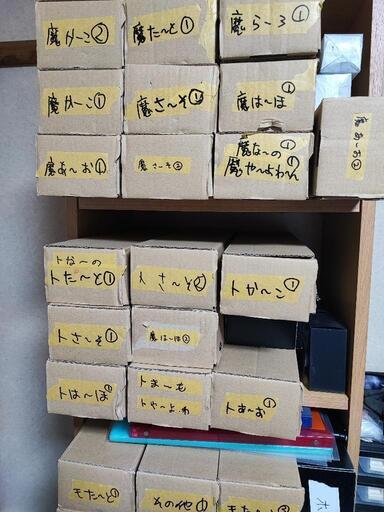 魔か〜こ②
魔た〜と①
魔ら〜ろ①
魔か〜こ①
魔さ〜そ①
魔は〜ほ
魔あ〜お①
魔さ〜そ②
魔な〜の①
魔や〜よわ〜ん
魔あ〜お②
トな〜の
トた〜と①
トさ〜そ②
トか〜こ①
トさ〜そ①
魔は〜ほ②
トは〜ほ①
トま〜も
トや〜よ.わ
トあ〜お①
モた〜と①
その他①